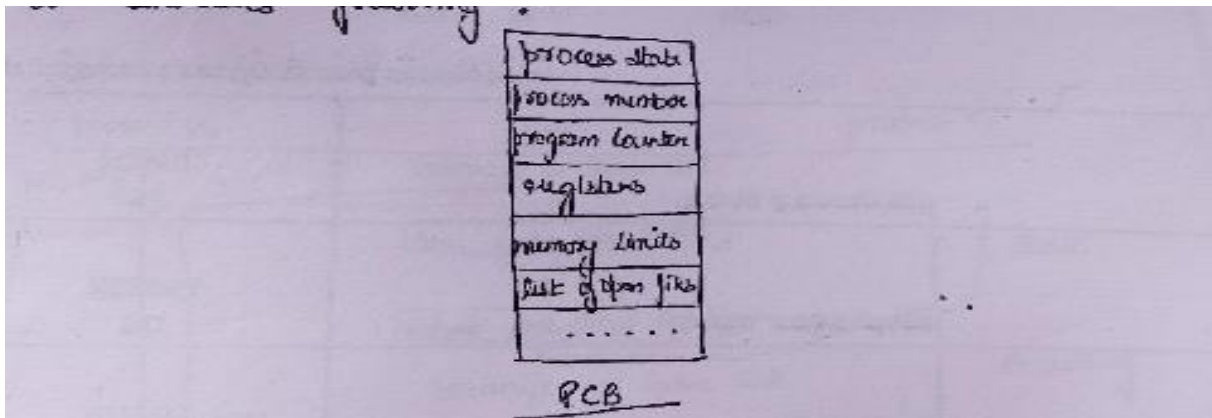 process state
process number
program counter
registers
memory limits
list of open files
. . . . . .
PCB